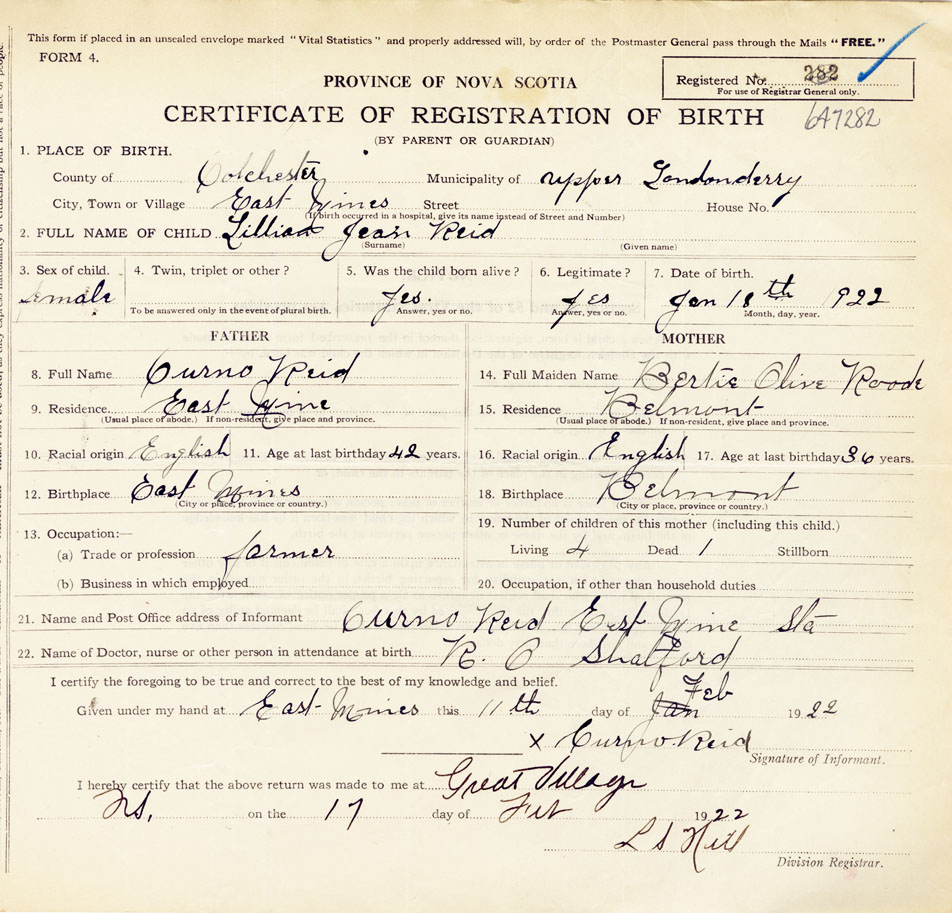 This form if placed in an unsealed envelope marked "Vital Statistics" and properly addressed will, by order of the Postmaster General pass through the Mails "FREE."
FORM 4.
PROVINCE OF NOVA SCOTIA
Registered No. 282
For use of Registrar General only.
CERTIFICATE OF REGISTRATION OF BIRTH
(BY PARENT OR GUARDIAN)
1. PLACE OF BIRTH.
County of Colchester Municipality of Upper Londonderry
City, Town or Village East Mines Street House No.
(If birth occurred in a hospital, give its name instead of Street and Number)
2. FULL NAME OF CHILD Lillian Jean Reid
(Surname) (Given name)
3. Sex of child. 4. Twin, triplet or other? 5. Was the child born alive? 6. Legitimate? 7. Date of birth.
female yes. yes Jan 18th 1922
To be answered only in the event of plural birth. Answer, yes or no. Answer, yes or no. Month, day, year.
FATHER MOTHER
8. Full Name Curno Reid 14. Full Maiden Name Bertie Olive Roode
9. Residence East Mine 15. Residence Belmont
(Usual place of abode.) If non-resident, give place and province. (Usual place of abode.) If non-resident, give place and province.
10. Racial origin English 11. Age at last birthday 42 years. 16. Racial origin English 17. Age at last birthday 36 years.
12. Birthplace East Mines 18. Birthplace Belmont
(City or place, province or country.) (City or place, province or country.)
13. Occupation:— 19. Number of children of this mother (including this child.)
(a) Trade or profession farmer Living 4 Dead 1 Stillborn
(b) Business in which employed 20. Occupation, if other than household duties
21. Name and Post Office address of Informant Curno Reid East Mine Sta
22. Name of Doctor, nurse or other person in attendance at birth R. C Shatford
I certify the foregoing to be true and correct to the best of my knowledge and belief.
Given under my hand at East Mines this 11th day of Jan Feb 1922
x Curno Reid
Signature of Informant.
I hereby certify that the above return was made to me at Great Village
NS, on the 17 day of Feb 1922
L S Hill
Division Registrar.